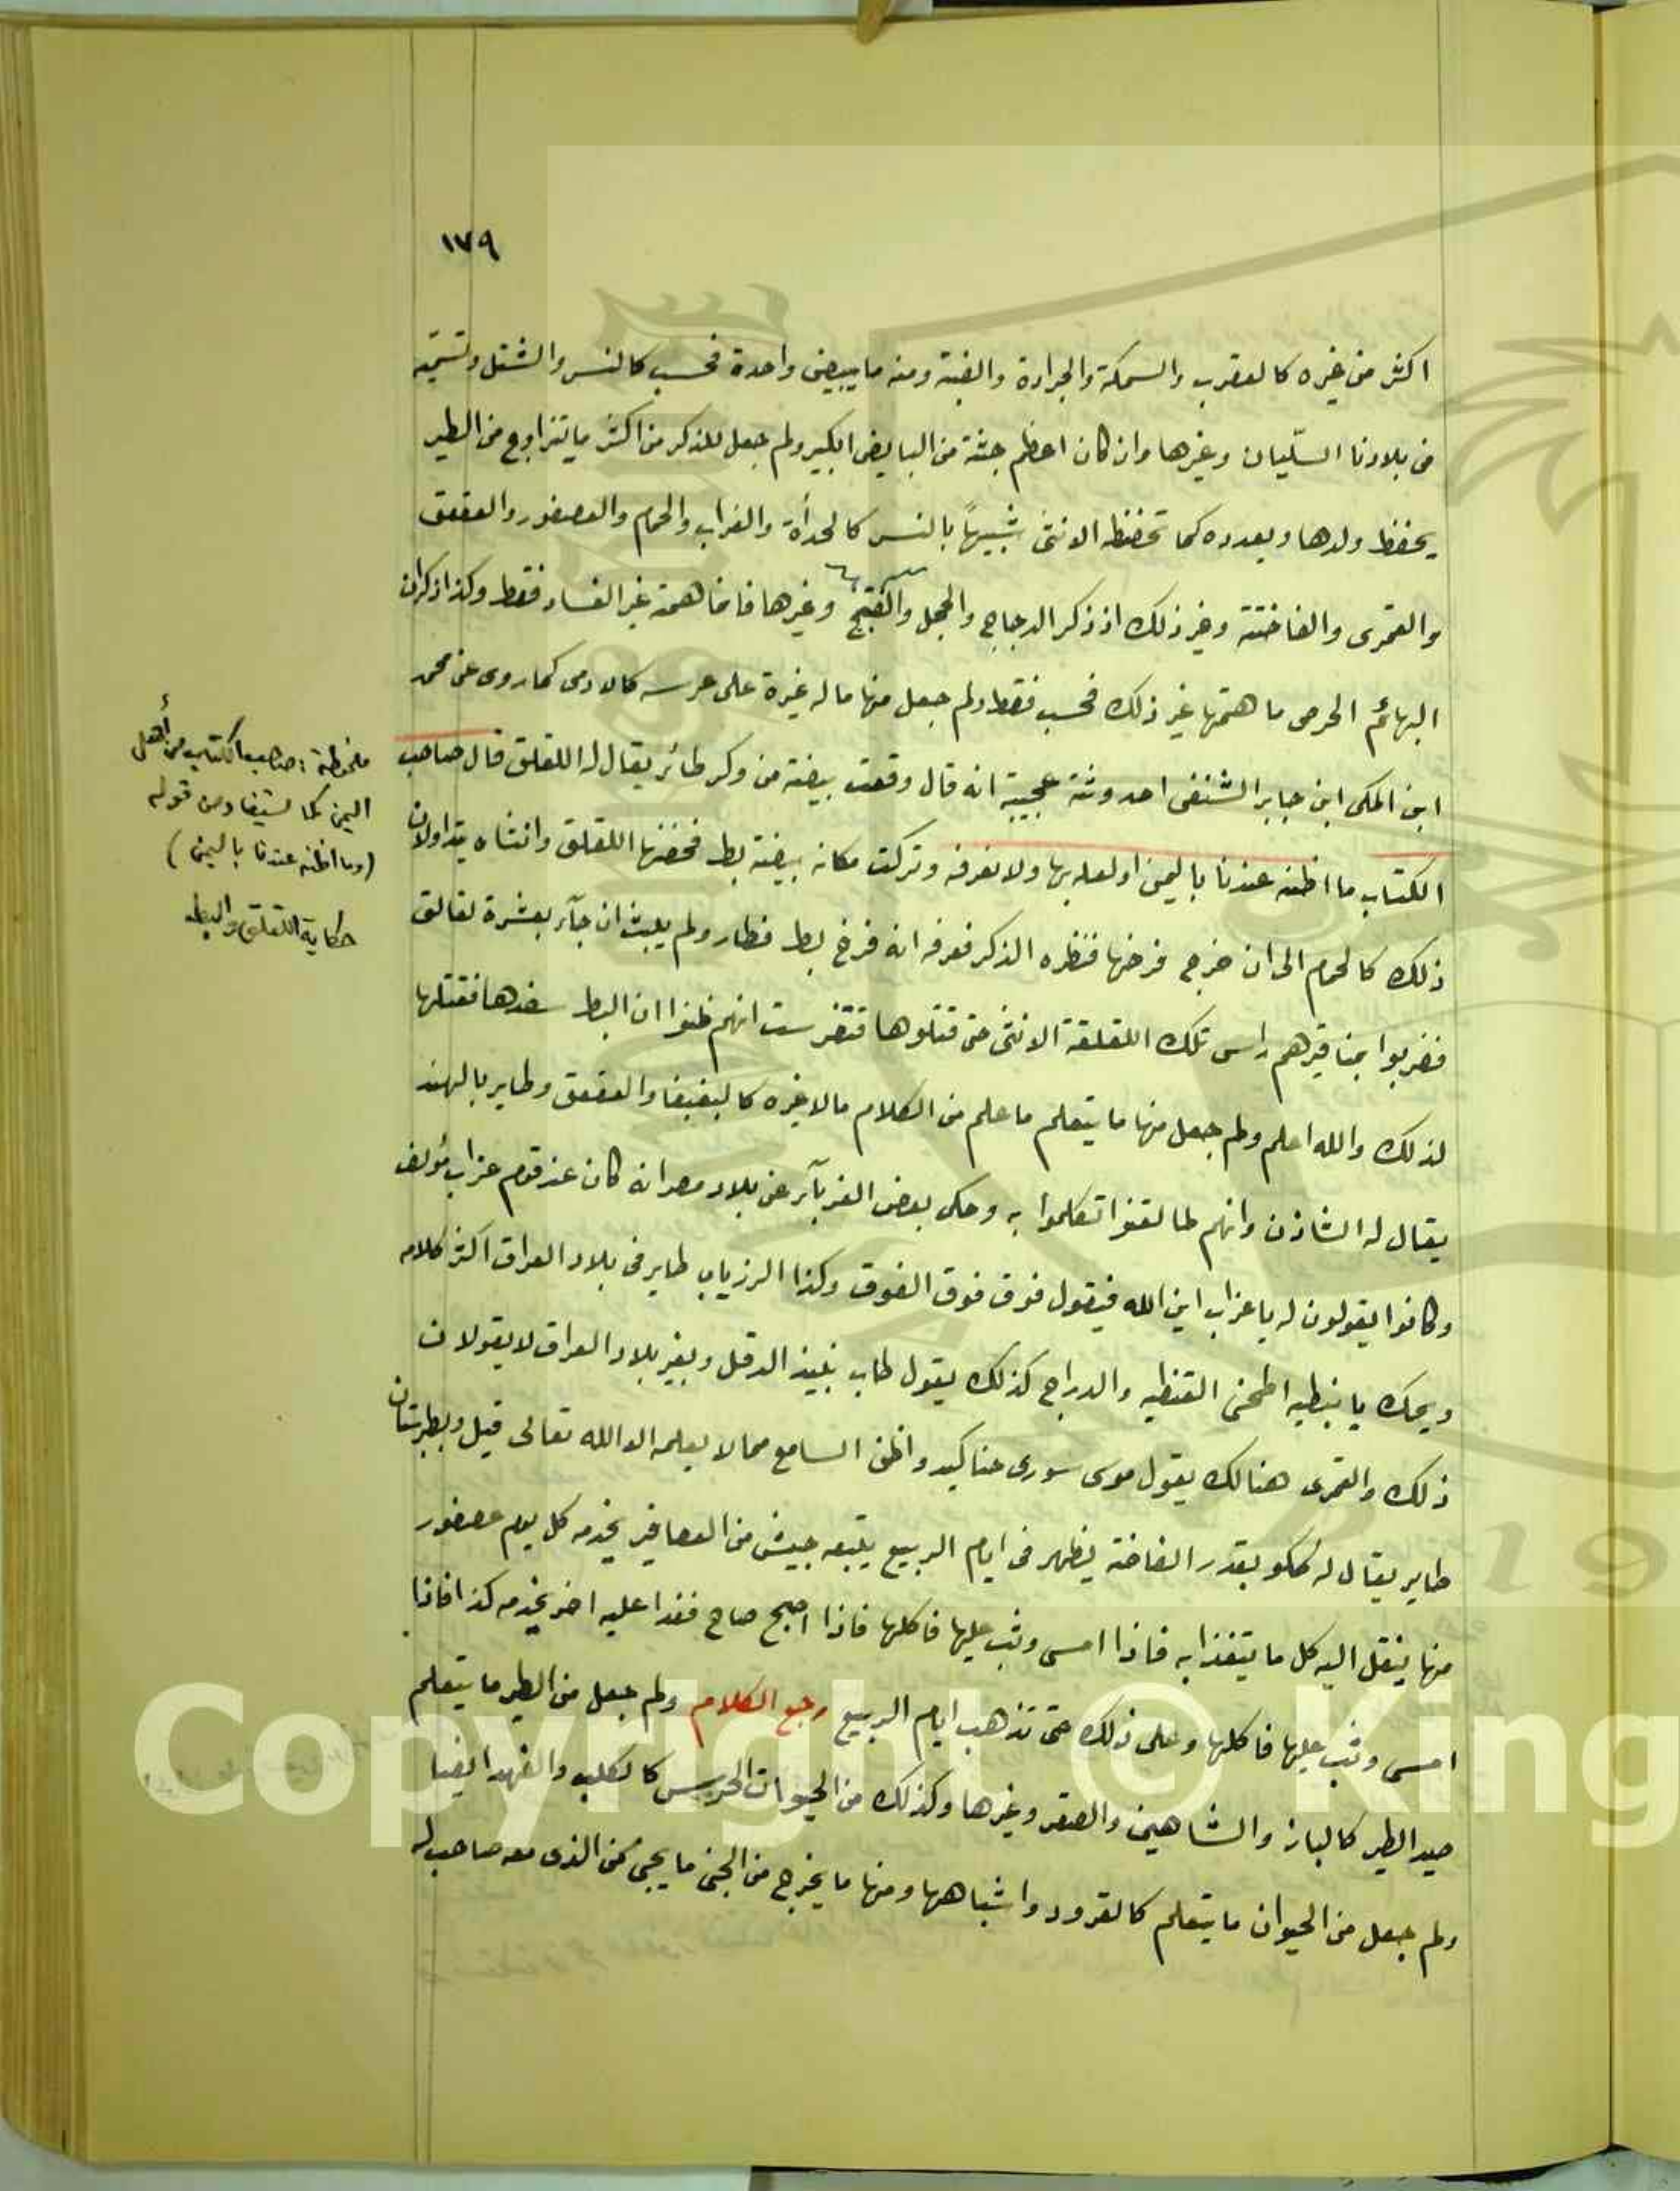 ١٧٩
اكثر من غيره كالعقرب والسمكة والجرادة والضبة ومنه ما يبيض واحدة فحسب كالنسر والشتل وتسميه
من بلادنا السّليان وغيرها وان كان اعظم جثة من البايض الكبير ولم جعل للذكر من اكثر ما يتزاوج من الطير
يحفظ ولدها ويعدده كما تحفظه الانثى شبيهاً بالنسر كالحدأة والغراب والحمام والعصفور والعقعق
والقمرى والفاختة وغير ذلك اذ ذكر الدجاج والحجل والقبج وغيرها فانما همته غير الفساد فقط وكذا ذكران
البهائم الحرص ما همتها غير ذلك فحسب فقط ولم جعل منها ما له غيرة على عرسه كالادمى كما روى عن محمد
ابن المكى ابن جابر الشنفى احدوثة عجيبة انه قال وقعت بيضة من وكر طائر يقال له اللقلق قال صاحب
الكتاب ما اظنه عندنا باليمن او لعله بها ولا نعرفه وتركت مكانه بيضة بط فحضنها اللقلق وانثاه يتداولان
ذلك كالحمام الى ان خرج فرخها فنظره الذكر فعرفه انه فرخ بط فطار ولم يلبث ان جآء بعشرة لقالق
فضربوا بمناقيرهم راس تلك اللقلقة الانثى حتى قتلوها فتفرست انهم ظنوا ان البط سفدها فقتلها
لذلك والله اعلم ولم جعل منها ما يتعلم ما علم من الكلام مالا غيره كالببغبغا والعقعق وطاير بالهند
يقال له الشاذن وانهم لما لقنوا تكلموا به وحكى بعض الغربآء عن بلاد مصر انه كان عند قوم غراب مؤلف
وكانوا يقولون له يا غراب اين الله فيقول فوق فوق الفوق وكذا الرزياب طاير فى بلاد العراق اكثر كلامه
ويحك يا نبطيه اطحنى القنطيه والدراج كذلك يقول طاب نبيذ الدقل وبغير بلاد العراق لا يقولان
ذلك والقمرى هنالك يقول موسى سورى حناكيد واظن السامع مما لا يعلمه الا الله تعالى قيل وبطبرستان
طاير يقال له ككو بقدر الفاختة يظهر فى ايام الربيع يتبعه جيش من العصافير يخدمه كل يوم عصفور
منها ينقل اليه كل ما يتغذا به فاذا امسى وثب عليها فاكلها فاذا اصبح صاح فغدا عليه اخر يخدمه كذا فاذا
امسى وثب عليها فاكلها وعلى ذلك حتى تذهب ايام الربيع رجع الكلام ولم جعل من الطير ما يتعلم
صيد الطير كالباز والشاهين والصقر وغيرها وكذلك من الحيوات الحرس كالكلب والفهد ايضا
ولم جعل من الحيوان ما يتعلم كالقرود واشباهها ومنها ما يخرج من الجنى ما يجى من الذى معه صاحب له
ملحوظة : صاحب الكتاب من أهل
اليمن كما يستفاد من قوله
(وما اظنه عندنا باليمن)
حكاية اللقلق والبط
Copyright © King
19